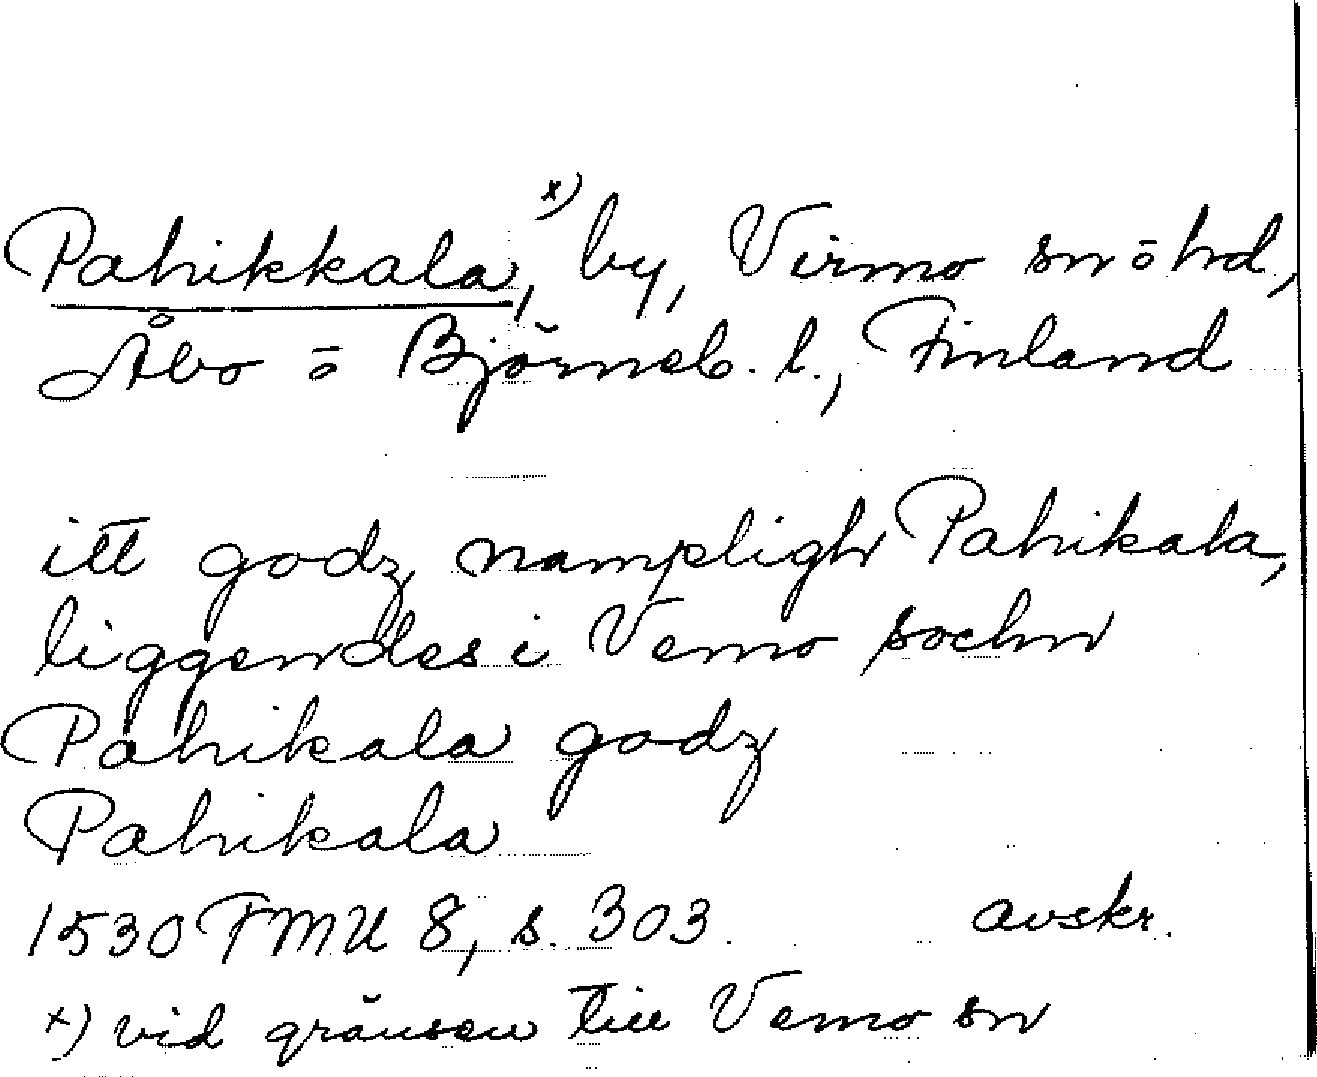 Pahikkala,ˣ⁾ by, Virmo sn ō hd,
Åbo ō Björneb. l., Finland
itt godz nampligh Pahikala,
liggendes i Vemo sochn
Pahikala godz
Pahikala
1530 FMU 8, s. 303. avskr.
x) vid gränsen till Vemo sn